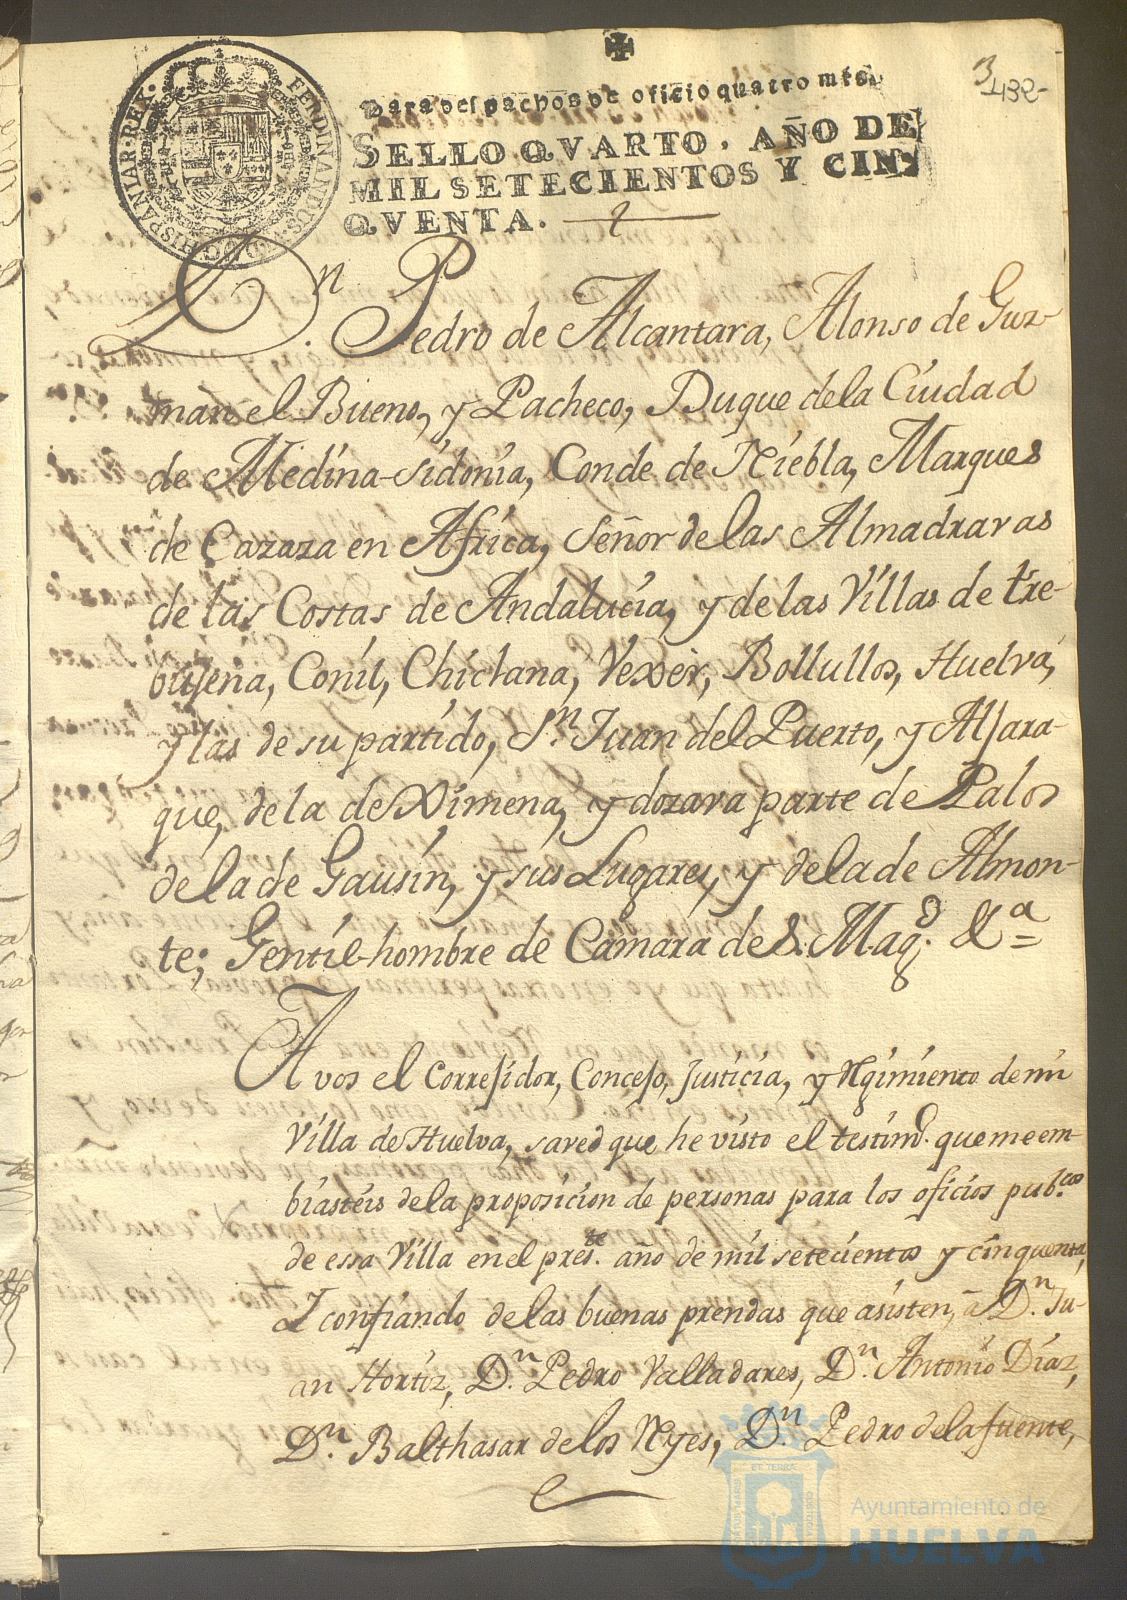 ✠
3
432
Para despachos de oficio quatro mrs.
SELLO QVARTO, AÑO DE
MIL SETECIENTOS Y CIN-
QVENTA.
FERDINANDUS·VI·D·G·HISPANIAR·REX·
Dn. Pedro de Alcantara, Alonso de Guz-
man el Bueno, y Pacheco, Duque de la Ciudad
de Medina-Sidonia, Conde de Niebla, Marques
de Cazaza en Africa, Señor de las Almadravas
de las Costas de Andalucia, y de las Villas de tre-
bugena, Conil, Chiclana, Vexèr, Bollullos, Huelva,
y las de su partido, Sn. Juan del Puerto, y Aljara-
que, de la de Ximena, y dozava parte de Palos
de la de Gausin, y sus Lugares, y de la de Almon-
te; Gentil-hombre de Camara de S. Magd. &a =
A vos el Corregidor, Concejo, Justicia, y Rgimiento de mi
Villa de Huelva, saved que he visto el testimo. que me em-
biasteis de la proposicion de personas para los oficios pubcos.
de essa Villa en el preste. año de mil setecientos y cinquenta,
I confiando de las buenas prendas que asisten, â Dn. Ju-
an Hortiz, Dn. Pedro Valladares, Dn. Antonio Diaz,
Dn. Balthasar de los Ryes, Dn. Pedro de la fuente,
Ayuntamiento de
HUELVA